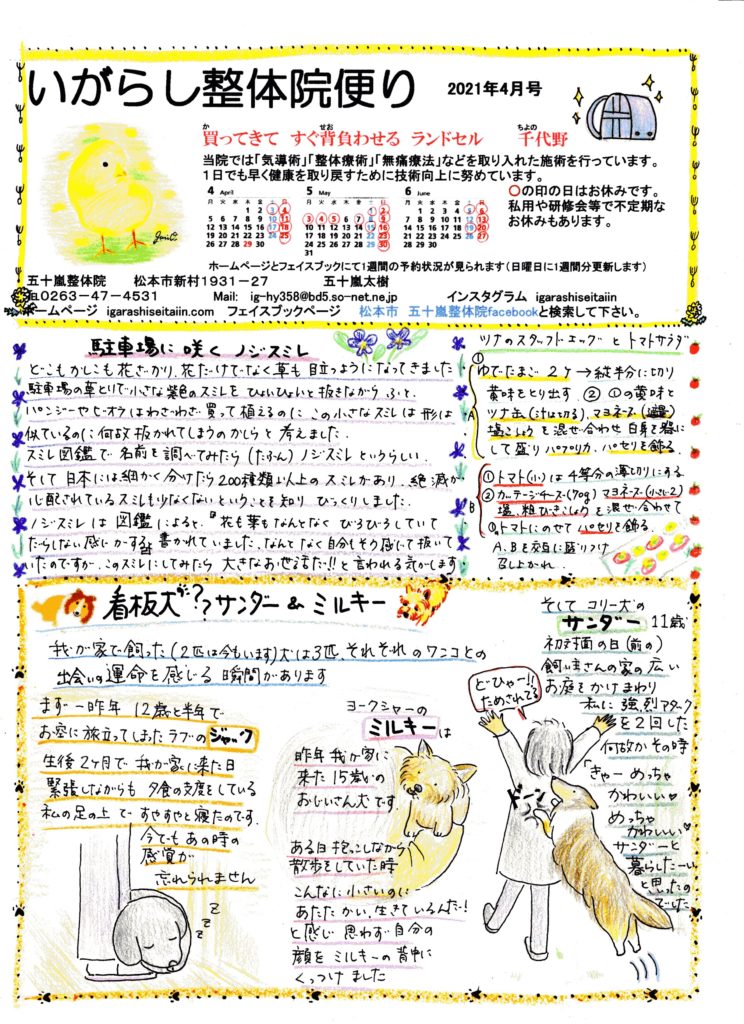 いがらし整体院便り 2021年4月号
買ってきて すぐ背負わせる ランドセル 千代野
か せお ちよの
当院では「気導術」「整体療術」「無痛療法」などを取り入れた施術を行っています。
1日でも早く健康を取り戻すために技術向上に努めています。
4 April
月 火 水 木 金 土 日
1 2 3 4
5 6 7 8 9 10 11
12 13 14 15 16 17 18
19 20 21 22 23 24 25
26 27 28 29 30
5 May
月 火 水 木 金 土 日
1 2
3 4 5 6 7 8 9
10 11 12 13 14 15 16
17 18 19 20 21 22 23
24 25 26 27 28 29 30
31
6 June
月 火 水 木 金 土 日
1 2 3 4 5 6
7 8 9 10 11 12 13
14 15 16 17 18 19 20
21 22 23 24 25 26 27
28 29 30
〇の印の日はお休みです。
私用や研修会等で不定期な
お休みもあります。
ホームページとフェイスブックにて1週間の予約状況が見られます(日曜日に1週間分更新します)
五十嵐整体院 松本市新村1931-27 五十嵐太樹
℡0263-47-4531 Mail: ig-hy358@bd5.so-net.ne.jp インスタグラム igarashiseitaiin
ホームページ igarashiseitaiin.com フェイスブックページ 松本市 五十嵐整体院facebookと検索して下さい。
駐車場に咲くノジスミレ
どこもかしこも花ざかり、花だけでなく草も目立つようになってきました
駐車場の草とりで小さな紫色のスミレをひょいひょいと抜きながら ふと、
パンジーやビオラはわざわざ買って植えるのに この小さなスミレは形は
似ているのに何故抜かれてしまうのかしらと考えました.
スミレ図鑑で名前を調べてみたら(たぶん)ノジスミレというらしい.
そして日本には細かく分けたら200種類以上のスミレがあり、絶滅が
心配されているスミレも少なくないということを知り びっくりしました.
ノジスミレは図鑑によると、『花も葉もなんとなく ひろひろしていて
だらしない感じがする』と書かれていました、なんとなく自分もそう感じて抜いて
いたのですが、このスミレにしてみたら 大きなお世話だ!!と言われる気がします
ツナのスタッフトエッグとトマトサラダ
A
①
ゆでたまご2ケ→縦半分に切り
黄味をとり出す. ② ①の黄味と
ツナ缶(汁は切る)、マヨネーズ(適量)
塩こしょうを混ぜ合わせ 白身を器に
して盛りパプリカ、パセリを飾る.
B
①トマト(小)は4等分の薄切りにする.
②カッテージチーズ(70g) マヨネーズ(小さじ2)
塩、粗びきこしょうを混ぜ合わせて
①トマトにのせて パセリを飾る.
A、Bを交互に盛りつけ
召し上がれ.
看板犬が??サンダー&ミルキー
我が家で飼った(2匹は今もいます)犬は3匹、それぞれのワンコとの
出会いの運命を感じる瞬間があります
まず一昨年 12歳と半年で
お空に旅立ってしまったラブのジャック
生後2ヶ月で 我が家に来た日
緊張しながらも 夕食の支度をしている
私の足の上で すやすやと寝たのです.
今でもあの時の
感覚が
忘れられません
z z z
ヨークシャーの
ミルキーは
昨年我が家に
来た15歳の
おじいさん犬です.
ある日 抱っこしながら
散歩をしていた時
こんなに小さいのに
あたたかい、生きているんだ!!
と感じ思わず自分の
顔をミルキーの背中に
くっつけました
そしてコリー犬の
サンダー 11歳
初対面の日(前の)
飼い主さんの家の広い
お庭をかけまわり
私に強烈アタック
を2回した
何故かその時
「きゃーめっちゃ
かわいい♥
めっちゃ
かわいい♥
サンダーと
暮らしたーい
と思ったの
でした
どひゃー!!
ためされてる
ドーン